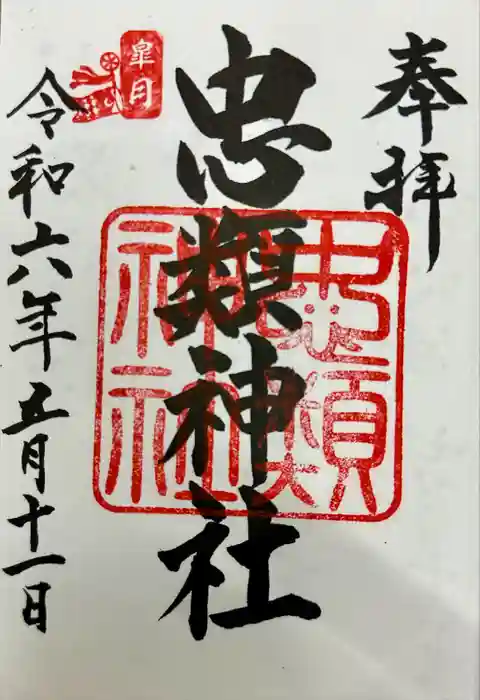 奉拝
忠類神社
忠類
神社
皐月
令和六年五月十一日